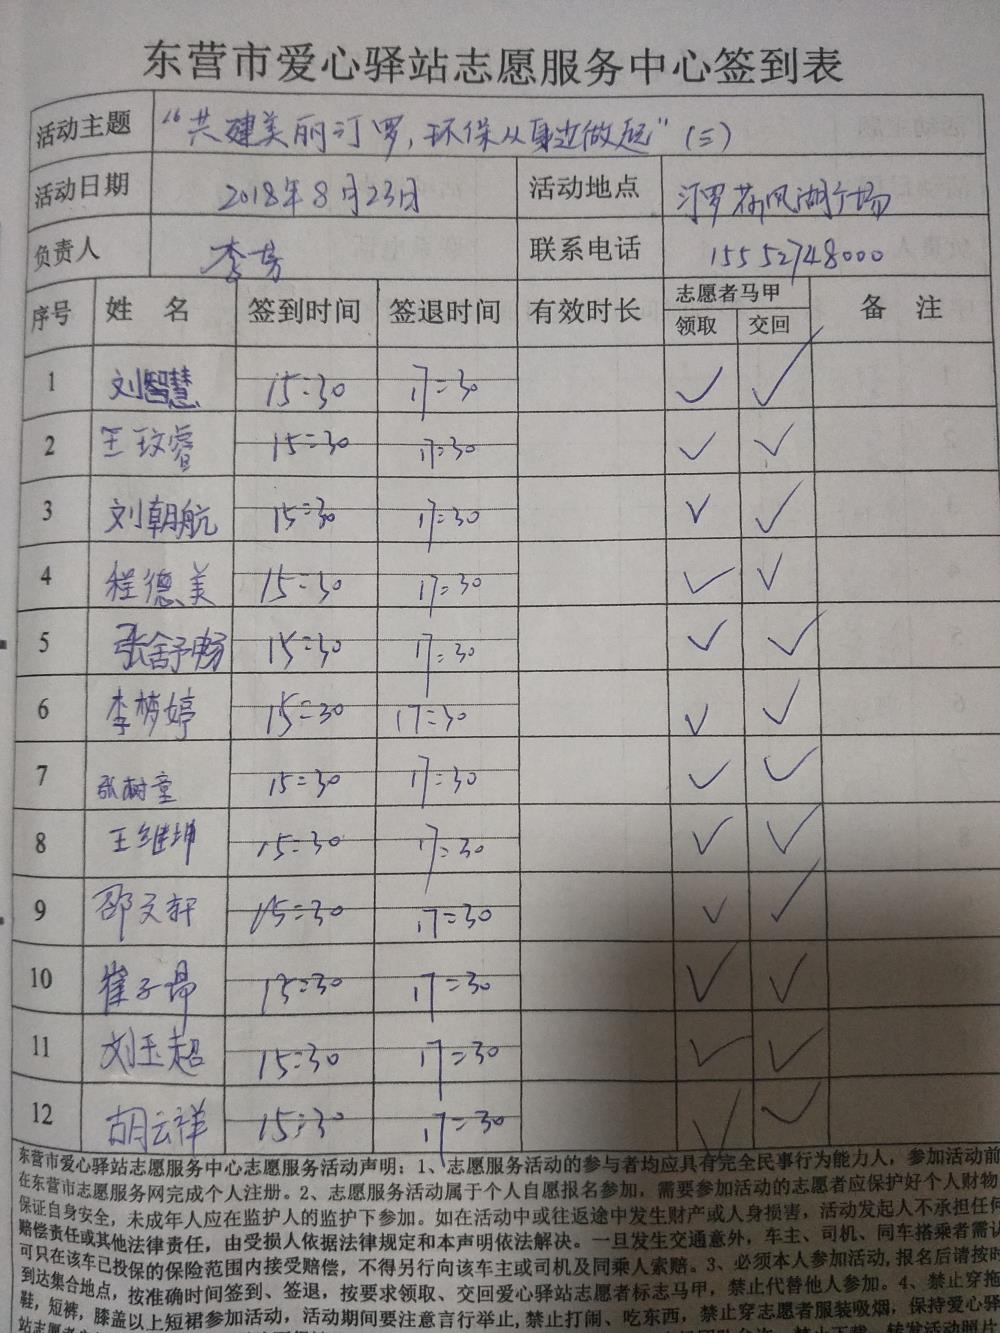 东营市爱心驿站志愿服务中心签到表
活动主题 “共建美丽汀罗，环保从身边做起”（三）
活动日期 2018年8月23日 活动地点 汀罗荷风湖广场
负责人 李芳 联系电话 15552748000
序号 姓 名 签到时间 签退时间 有效时长 志愿者马甲 备 注
领取 交回
1 刘智慧 15:30 17:30 ✓ ✓
2 王玟睿 15:30 17:30 ✓ ✓
3 刘朝航 15:30 17:30 ✓ ✓
4 程德美 15:30 17:30 ✓ ✓
5 张舒畅 15:30 17:30 ✓ ✓
6 李梦婷 15:30 17:30 ✓ ✓
7 张树童 15:30 17:30 ✓ ✓
8 王维坤 15:30 17:30 ✓ ✓
9 邵文轩 15:30 17:30 ✓ ✓
10 崔子昂 15:30 17:30 ✓ ✓
11 刘玉超 15:30 17:30 ✓ ✓
12 胡云祥 15:30 17:30 ✓ ✓
东营市爱心驿站志愿服务中心志愿服务活动声明：1、志愿服务活动的参与者均应具有完全民事行为能力人，参加活动前
在东营市志愿服务网完成个人注册。2、志愿服务活动属于个人自愿报名参加，需要参加活动的志愿者应保护好个人财物
保证自身安全，未成年人应在监护人的监护下参加。如在活动中或往返途中发生财产或人身损害，活动发起人不承担任何
赔偿责任或其他法律责任，由受损人依据法律规定和本声明依法解决。一旦发生交通意外，车主、司机、同车搭乘者需认
可只在该车已投保的保险范围内接受赔偿，不得另行向该车主或司机及同乘人索赔。3、必须本人参加活动，报名后请按时
到达集合地点，按准确时间签到、签退，按要求领取、交回爱心驿站志愿者标志马甲，禁止代替他人参加。4、禁止穿拖
鞋，短裤，膝盖以上短裙参加活动，活动期间要注意言行举止，禁止打闹、吃东西，禁止穿志愿者服装吸烟，保持爱心驿